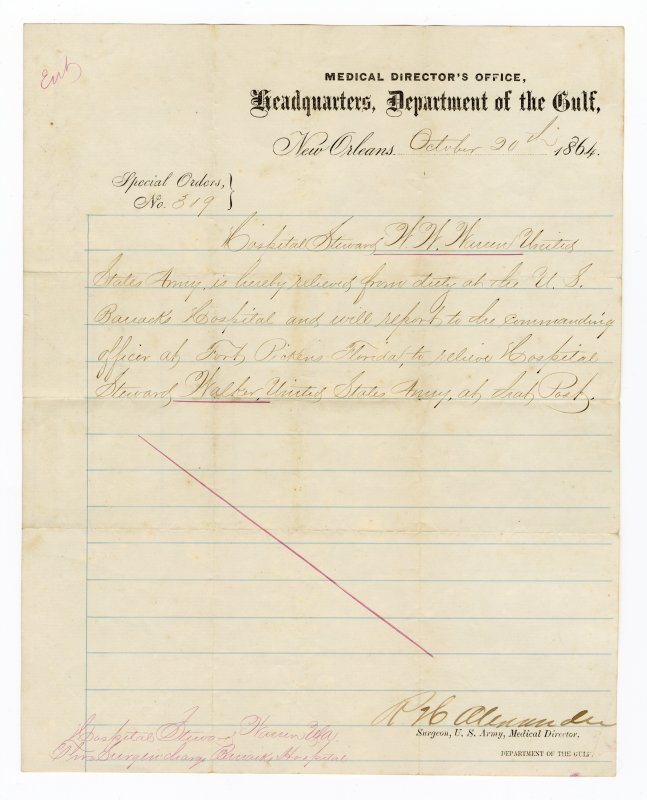 Ent
MEDICAL DIRECTOR'S OFFICE,
Headquarters, Department of the Gulf,
New Orleans October 20th 1864.
Special Orders,
No. 319
Hospital Steward W. W. Warren United
States Army, is hereby relieved from duty at the U. S.
Barracks Hospital and will report to the commanding
officer at Fort Pickens Florida, to relieve Hospital
Steward Walker, United States Army, at that Post.
R H Alexander
Surgeon, U. S. Army, Medical Director.
DEPARTMENT OF THE GULF.
Hospital Stew Warren USA
Surgeon Barracks Hospital